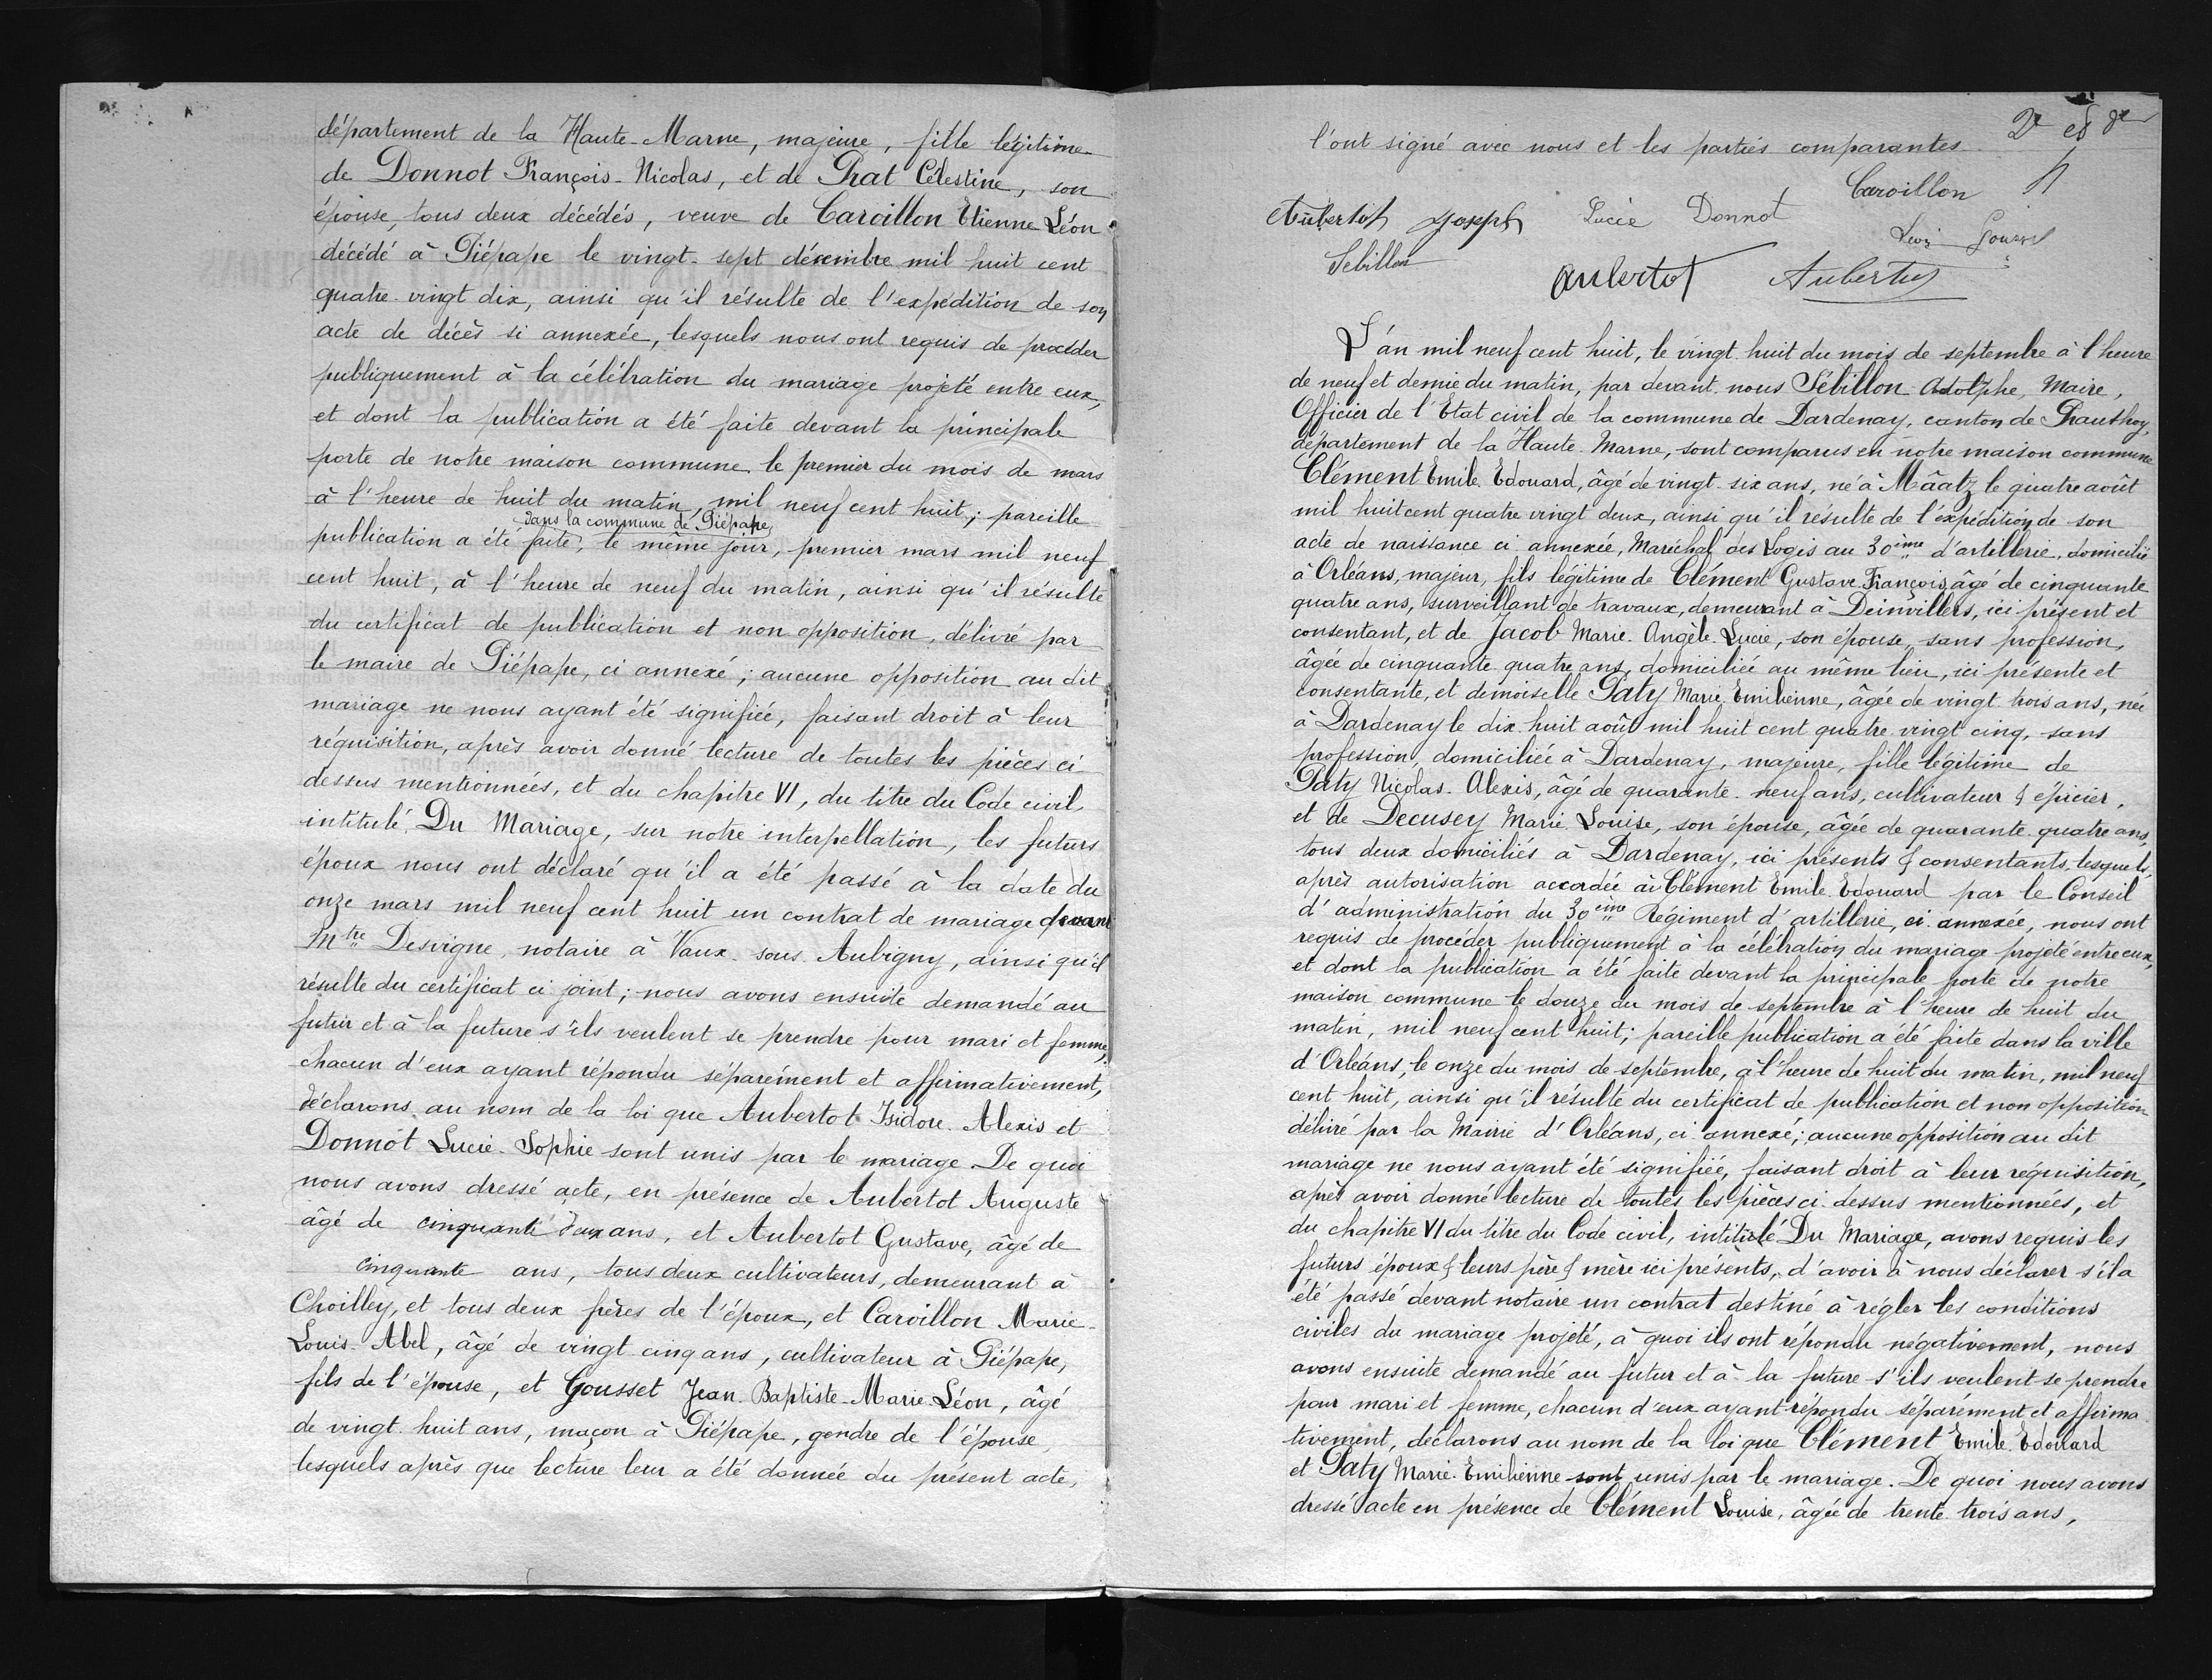 département de la Haute-Marne, majeure, fille légitime
de Donnot François-Nicolas, et de Prat Célestine, son
épouse, tous deux décédés, veuve de Caroillon Etienne Léon
décédé à Piépape le vingt-sept décembre mil huit cent
quatre-vingt dix, ainsi qu'il résulte de l'expédition de son
acte de décès si annexée, lesquels nous ont requis de procéder
publiquement à la célébration du mariage projeté entre eux,
et dont la publication a été faite devant la principale
porte de notre maison commune le premier du mois de mars
à l'heure de huit du matin, mil neuf cent huit; pareille
dans la commune de Piépape
publication a été faite, le même jour, premier mars mil neuf
cent huit, à l'heure de neuf du matin, ainsi qu'il résulte
du certificat de publication et non opposition, délivré par
le maire de Piépape, ci annexé; aucune opposition au dit
mariage ne nous ayant été signifiée, faisant droit à leur
réquisition, après avoir donné lecture de toutes les pièces ci-
dessus mentionnées, et du chapitre VI, du titre du Code civil,
intitulé, Du Mariage, sur notre interpellation, les futurs
époux nous ont déclaré qu'il a été passé à la date du
onze mars mil neuf cent huit un contrat de mariage devant
Mtre Desvigne, notaire à Vaux-sous-Aubigny, ainsi qu'il
résulte du certificat ci joint; nous avons ensuite demandé au
futur et à la future s'ils veulent se prendre pour mari et femme,
chacun d'eux ayant répondu séparément et affirmativement,
déclarons au nom de la loi que Aubertot Isidore-Alexis et
Donnot Lucie-Sophie sont unis par le mariage. De quoi
nous avons dressé acte, en présence de Aubertot Auguste
âgé de cinquante deux ans, et Aubertot Gustave, âgé de
cinquante ans, tous deux cultivateurs, demeurant à
Choilley, et tous deux frères de l'époux, et Caroillon Marie-
Louis-Abel, âgé de vingt-cinq ans, cultivateur à Piépape,
fils de l'épouse, et Gousset Jean-Baptiste-Marie-Léon, âgé
de vingt-huit ans, maçon à Piépape, gendre de l'épouse,
lesquels après que lecture leur a été donnée du présent acte,
2e et de
l'ont signé avec nous et les parties comparantes.
Caroillon
Aubertot Joseph Lucie Donnot
Sébillon
Aubertot
L'an mil neuf cent huit, le vingt-huit du mois de septembre à l'heure
de neuf et demie du matin, par devant nous Sébillon Adolphe, Maire,
Officier de l'Etat civil de la commune de Dardenay, canton de Prauthoy,
département de la Haute-Marne, sont comparus en notre maison commune
Clément Emile-Edouard, âgé de vingt-six ans, né à Mâatz le quatre août
mil huit cent quatre vingt deux, ainsi qu'il résulte de l'expédition de son
acte de naissance ci annexée, Maréchal des Logis au 30ème d'artillerie, domicilié
à Orléans, majeur, fils légitime de Clément Gustave-François, âgé de cinquante
quatre ans, surveillant de travaux, demeurant à Deinvillers, ici présent et
consentant, et de Jacob Marie-Angèle-Lucie, son épouse, sans profession,
âgée de cinquante-quatre ans, domiciliée au même lieu, ici présente et
consentante, et demoiselle Paty Marie-Emilienne, âgée de vingt-trois ans, née
à Dardenay le dix-huit août mil huit cent quatre vingt cinq, sans
profession, domiciliée à Dardenay, majeure, fille légitime de
Paty Nicolas-Alexis, âgé de quarante-neuf ans, cultivateur & épicier,
et de Decusey Marie-Louise, son épouse, âgée de quarante-quatre ans,
tous deux domiciliés à Dardenay, ici présents & consentants, lesquels,
après autorisation accordée à Clément Emile-Edouard par le Conseil
d'administration du 30ème Régiment d'artillerie, ci annexée, nous ont
requis de procéder publiquement à la célébration du mariage projeté entre eux,
et dont la publication a été faite devant la principale porte de notre
maison commune le douze du mois de septembre à l'heure de huit du
matin, mil neuf cent huit; pareille publication a été faite dans la ville
d'Orléans, le onze du mois de septembre, à l'heure de huit du matin, mil neuf
cent huit, ainsi qu'il résulte du certificat de publication et non opposition
délivré par la Mairie d'Orléans, ci annexé; aucune opposition au dit
mariage ne nous ayant été signifiée, faisant droit à leur réquisition,
après avoir donné lecture de toutes les pièces ci-dessus mentionnées, et
du chapitre VI du titre du Code civil, intitulé Du Mariage, avons requis les
futurs époux & leurs père & mère ici présents, d'avoir à nous déclarer s'il a
été passé devant notaire un contrat destiné à régler les conditions
civiles du mariage projeté, à quoi ils ont répondu négativement, nous
avons ensuite demandé au futur et à la future s'ils veulent se prendre
pour mari et femme, chacun d'eux ayant répondu séparément et affirma-
tivement, déclarons au nom de la loi que Clément Emile-Edouard
et Paty Marie-Emilienne sont unis par le mariage. De quoi nous avons
dressé acte en présence de Clément Louise, âgée de trente-trois ans,